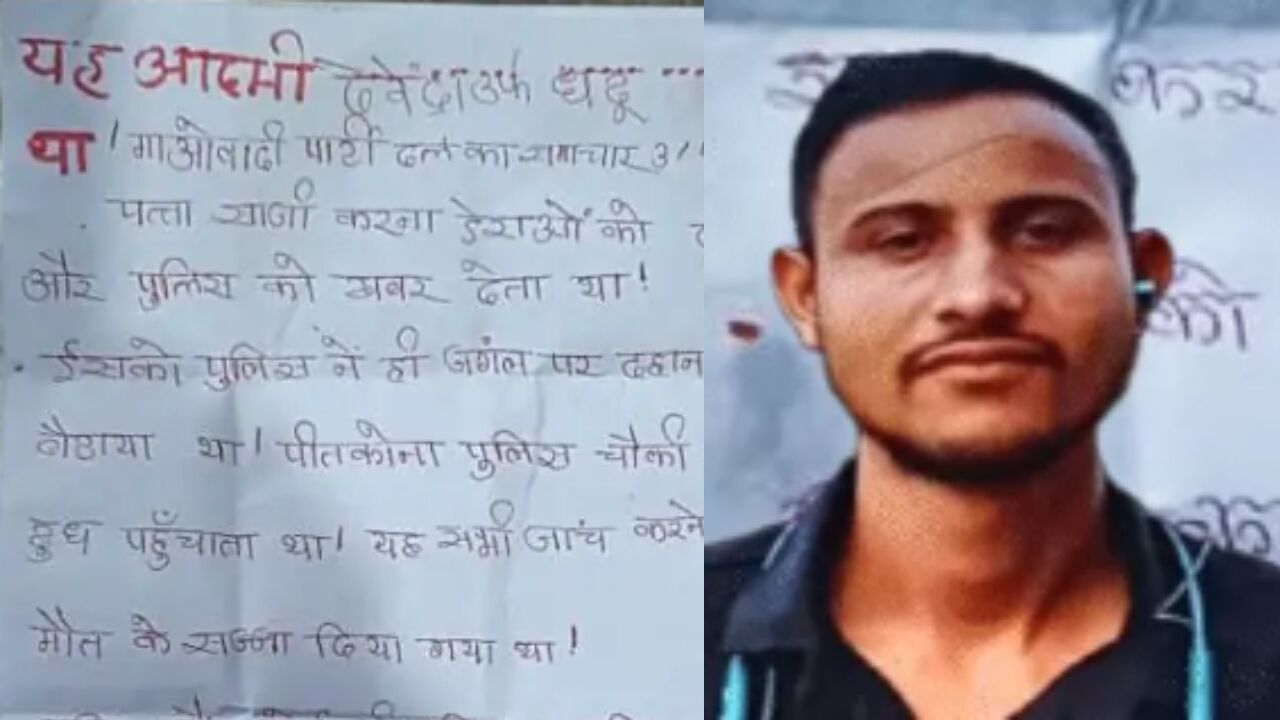 यह आदमी देवेंद्रा उर्फ धदू ...
था! माओवादी पार्टी दल का समाचार
पत्ता साजी करना डेराओं को
और पुलिस को खबर देता था!
ईसको पुलिस ने ही जगंल पर
बैठाया था! पीतकोना पुलिस चौकी
दुध पहुँचाता था! यह सभी जांच करने
मौत के सज्जा दिया गया था!
कर
को